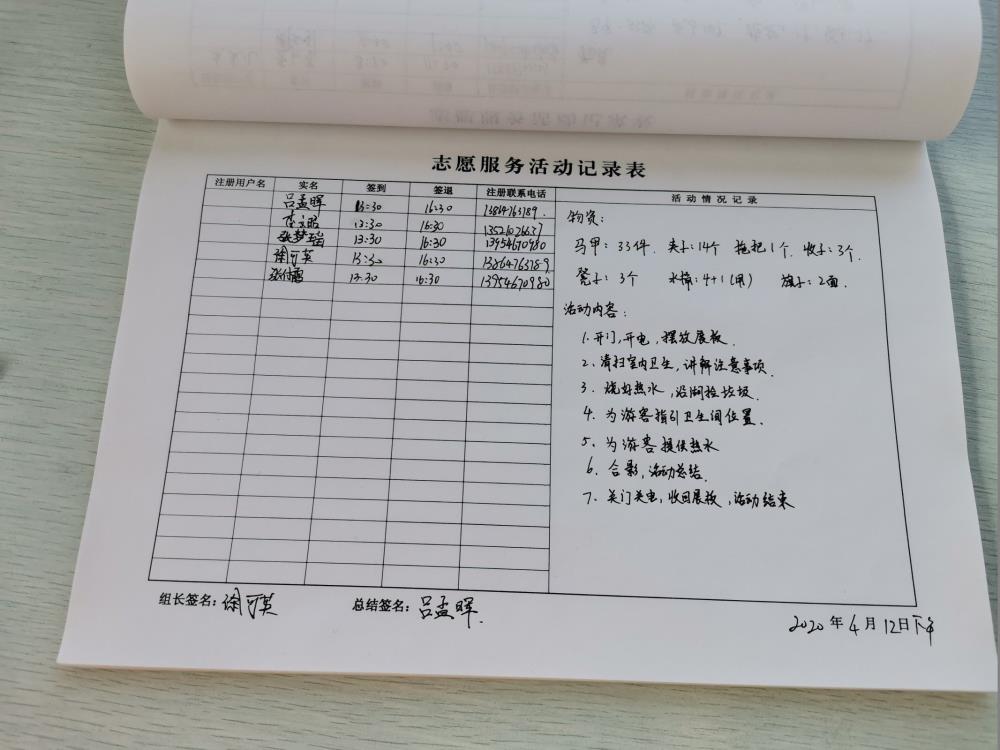 志愿服务活动记录表
注册用户名 实名 签到 签退 注册联系电话 活动情况记录
吕孟晖 13:30 16:30 13864763189.
李文昭 13:30 16:30
张梦瑶 13:30 16:30 13954670980
徐可英 13:30 16:30 13864763789
张付雷 13:30 16:30 13954670980
物资:
马甲: 33件. 夹子: 14个 拖把1个. 收子: 3个.
凳子: 3个 水桶: 4+1(用) 旗子: 2面.
活动内容:
1. 开门, 开电, 摆放展板.
2. 清扫室内卫生, 讲解注意事项.
3. 烧好热水, 沿湖捡垃圾.
4. 为游客指引卫生间位置.
5. 为游客提供热水
6. 合影, 活动总结.
7. 关门关电, 收回展板, 活动结束
组长签名: 徐可英 总结签名: 吕孟晖.
2020年4月12日下午